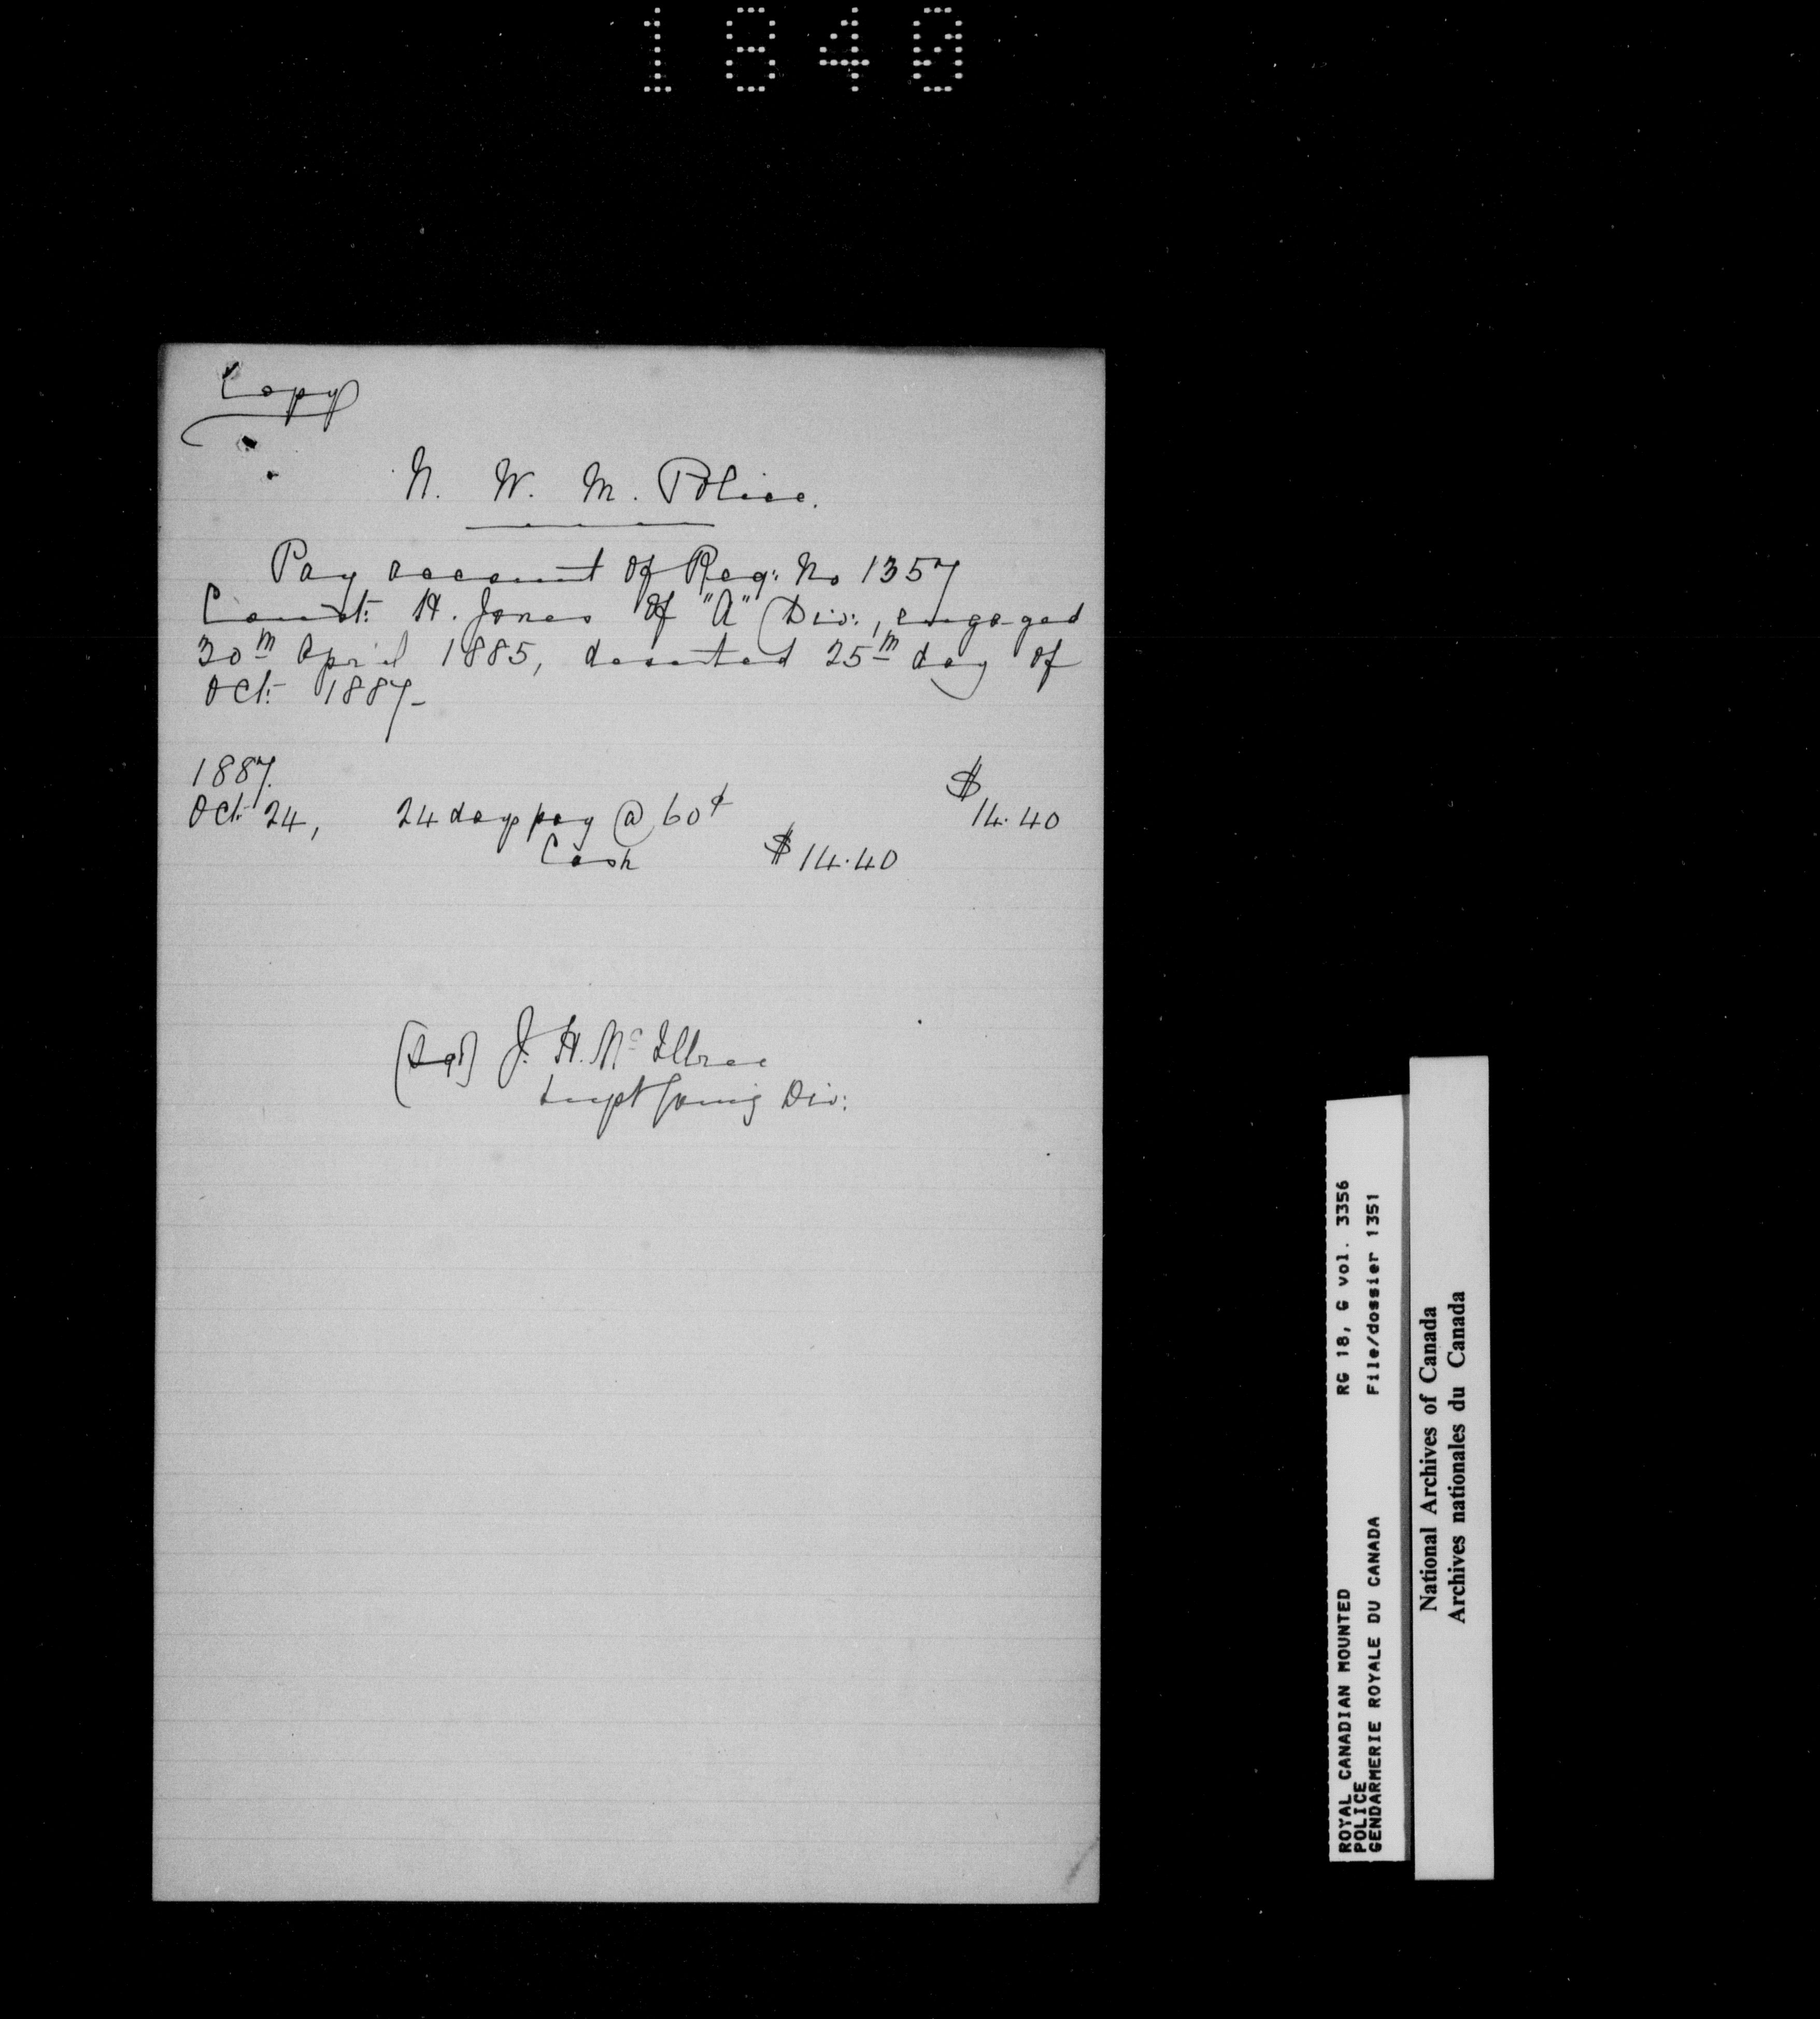 1840
Copy
N. W. M. Police.
Pay account of Reg: No 1357
Const: H. Jones of "A" Div:, engaged
30th April 1885, deserted 25th day of
Oct: 1887-
1887.
Oct: 24, 24 days pay @ 60¢ $14.40
Cash $14.40
(Sgd) J. H. McIllree
Supt Comg Div:
ROYAL CANADIAN MOUNTED RG 18, G vol. 3356
POLICE File/dossier 1351
GENDARMERIE ROYALE DU CANADA
National Archives of Canada
Archives nationales du Canada